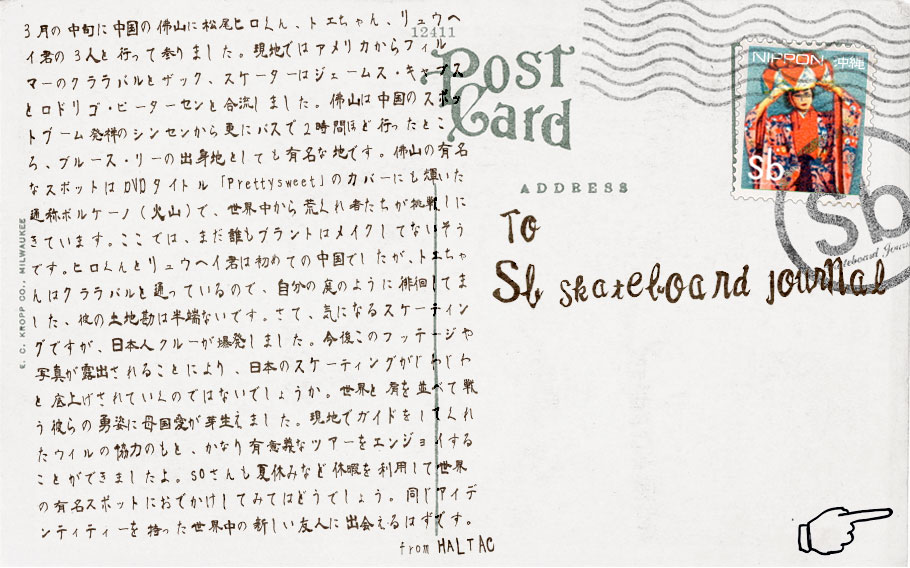 3月の中旬に中国の佛山に松尾ヒロくん、トエちゃん、リュウヘ
イ君の3人と行って参りました。現地ではアメリカからフィル
マーのクララバルとザック、スケーターはジェームス・キャップス
とロドリゴ・ピーターセンと合流しました。佛山は中国のスポッ
トブーム発祥のシンセンから更にバスで2時間ほど行ったとこ
ろ、ブルース・リーの出身地としても有名な地です。佛山の有名
なスポットはDVDタイトル「Prettysweet」のカバーにも輝いた
通称ボルケーノ(火山)で、世界中から荒くれ者たちが挑戦しに
きています。ここでは、まだ誰もブラントはメイクしてないそう
です。ヒロくんとリュウヘイ君は初めての中国でしたが、トエちゃ
んはクララバルと通っているので、自分の庭のように徘徊してま
した、彼の土地勘は半端ないです。さて、気になるスケーティン
グですが、日本人クルーが爆発しました。今後このフッテージや
写真が露出されることにより、日本のスケーティングがじわじわ
と底上げされていくのではないでしょうか。世界と肩を並べて戦
う彼らの勇姿に母国愛が芽生えました。現地でガイドをしてくれ
たウィルの協力のもと、かなり有意義なツアーをエンジョイする
ことができましたよ。SOさんも夏休みなど休暇を利用して世界
の有名スポットにおでかけしてみてはどうでしょう。同じアイデ
ンティティーを持った世界中の新しい友人に出会えるはずです。
from HALTAC
12411
Post
Card
ADDRESS
To
Sb skateboard journal
NIPPON 沖縄
Sb
Sb
Skateboard Journal
E. C. KROPP CO., MILWAUKEE